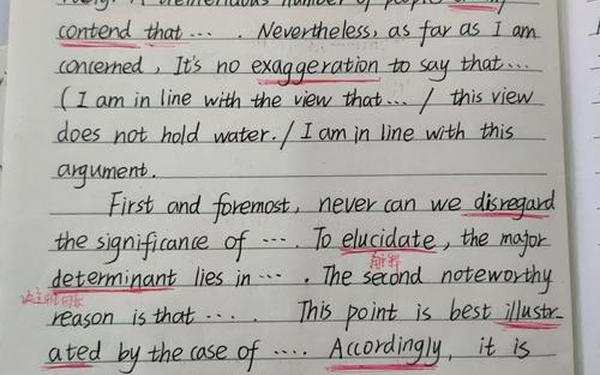 A tremendous number of people
contend that... . Nevertheless, as far as I am
concerned, It's no exaggeration to say that...
( I am in line with the view that... / this view
does not hold water. / I am in line with this
argument.
First and foremost, never can we disregard
the significance of .... To elucidate, the major
解释
determinant lies in ... . The second noteworthy
reason is that .... This point is best illustr-
ated by the case of .... Accordingly, it is